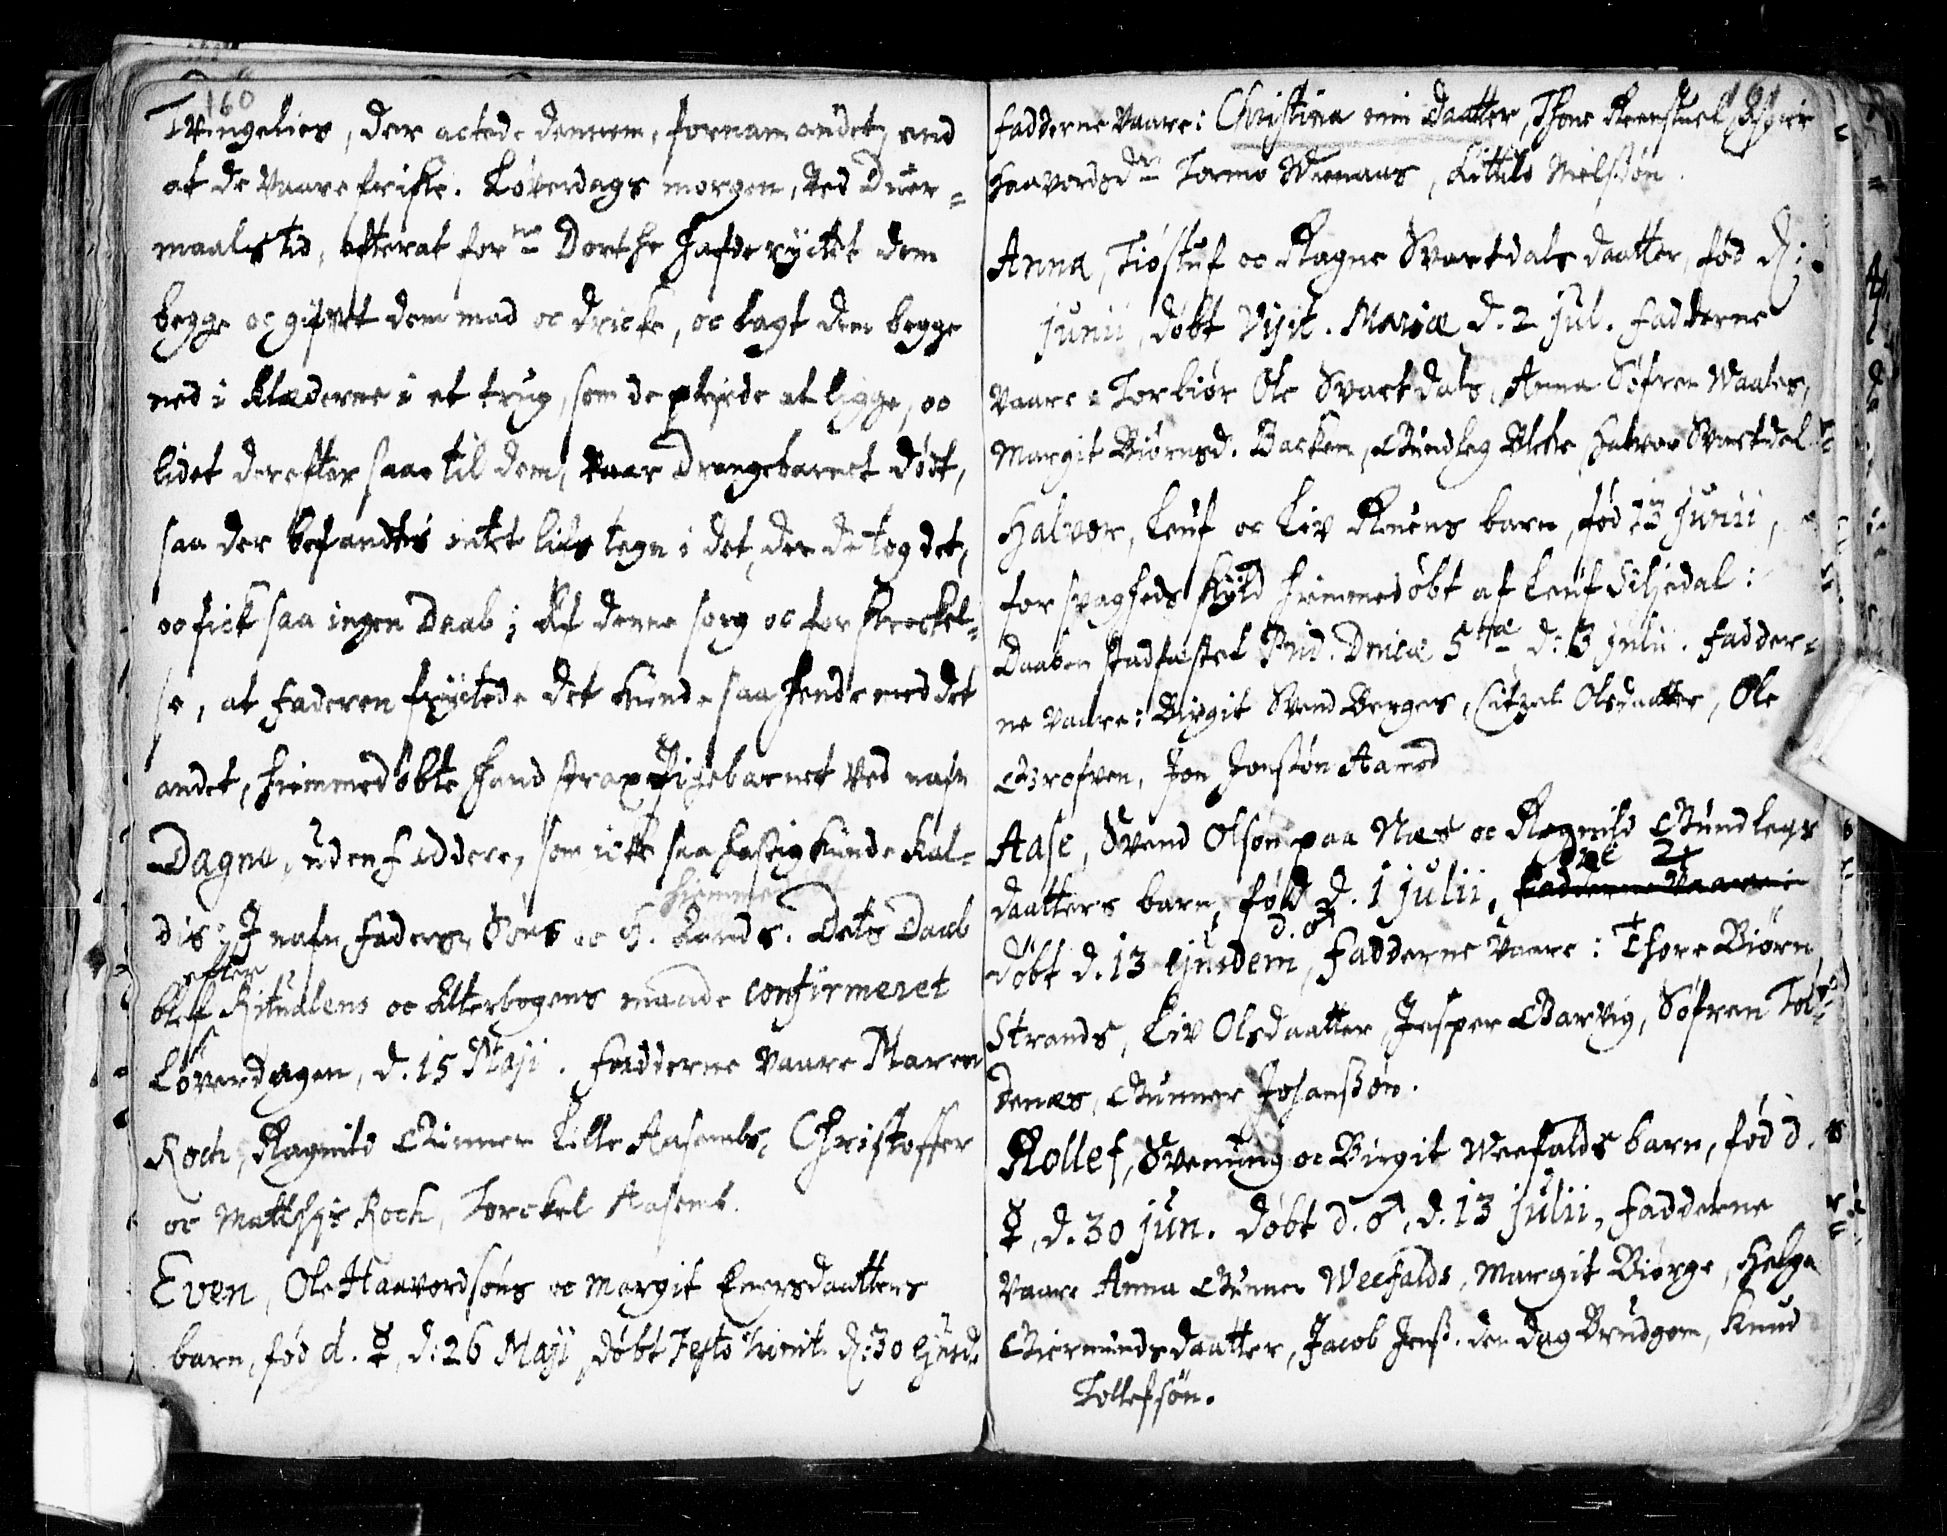 160
Tvingelies, der actede dennem, fornam andet, end
at de vaare friske. Løverdags morgen, ved Duer=
maals tid, efterat for ne Dorthe hafde ryctet dem
begge oc gifvet dem mad oc dricke, oc lagt dem begge
ned i klæderne i et trug, som de pleyede at ligge, oc
lidet derefter saae til dem, vaar Drengebarnet dødt,
saa der befandtis intet lifs tegn i det, der de tog det,
oc fick saa ingen Daab; Af denne sorg oc forskreckel=
se, at Faderen fryctede det kunde saa hende med det
andet, hiemmedøbte hand strax Pigebarnet ved nafn
Dagne, uden Faddere, som icke saa hastig kunde kal=
dis: J nafn, Faders, Søns oc H. Aands. Dets Daab
hiemme
efter
blef Ritualens oc Alterbogens maade confirmeret
Løverdagen, d. 15 Maji. Fadderne vaare Maren
Koch, Ragnild Gunner Lille Aasembs, Christoffer
oc Matthis Koch, Torckel Aasemb.
Even, Ole Haavordsøns oc Margit Enersdaatters
barn, fød d. ☿, d: 26 Maji, døbt Festo Trinit. d: 30 Ejusd.
Fadderne vaare: Christina min Daatter, Thone
Haavordsd. Tormo, Kittil Nielssøn.
Anna, Tiøstuf oc Ragne Svartdals daatter, fød d:
Junii, døbt Visit. Mariæ d. 2 Jul. Fadderne
vaare: Torbiør Ole Svartdals, Anna Søfren Waales,
Margit Biørnsd. Backen, Gundleg Bleke, Halvor Svartdal
Halvor, Leuf oc Liv Ruens barn, fød 13 Junii,
for svagheds skyld hiemmedøbt af Leuf Siljedal:
Daaben stadfæstet Prid. Dnicæ 5 tæ d: 3 Julii. Fadder=
ne vaare: Birgit Svend Berges, Citzel Olsdaatter, Ole
Grofven, Jon Jonsøn Aamod
Aase, Svend Olsøn paa Næs oc Ragnild Gundlegs
daatters barn, fød d. 1 Julii, Fadderne vaare
die ♃
d. ♂
Døbt d. 13 Ejusdem, Fadderne vaare: Thore Biørn
Strands, Liv Olsdaatter, Jesper Garvig, Søfren
Denæs, Gunner Johanssøn.
Rollef, Svenung oc Birgit Weefalds barn, fød d.
☿, d. 30 Jun. Døbt d. ♂, d. 13 Julii, Fadderne
vaare Anna Gunner Weefalds, Margit Biørge, Helge
Giermundsdaatter, Jacob Jenss. den dag Brudgom, Knud
Tollefsøn.